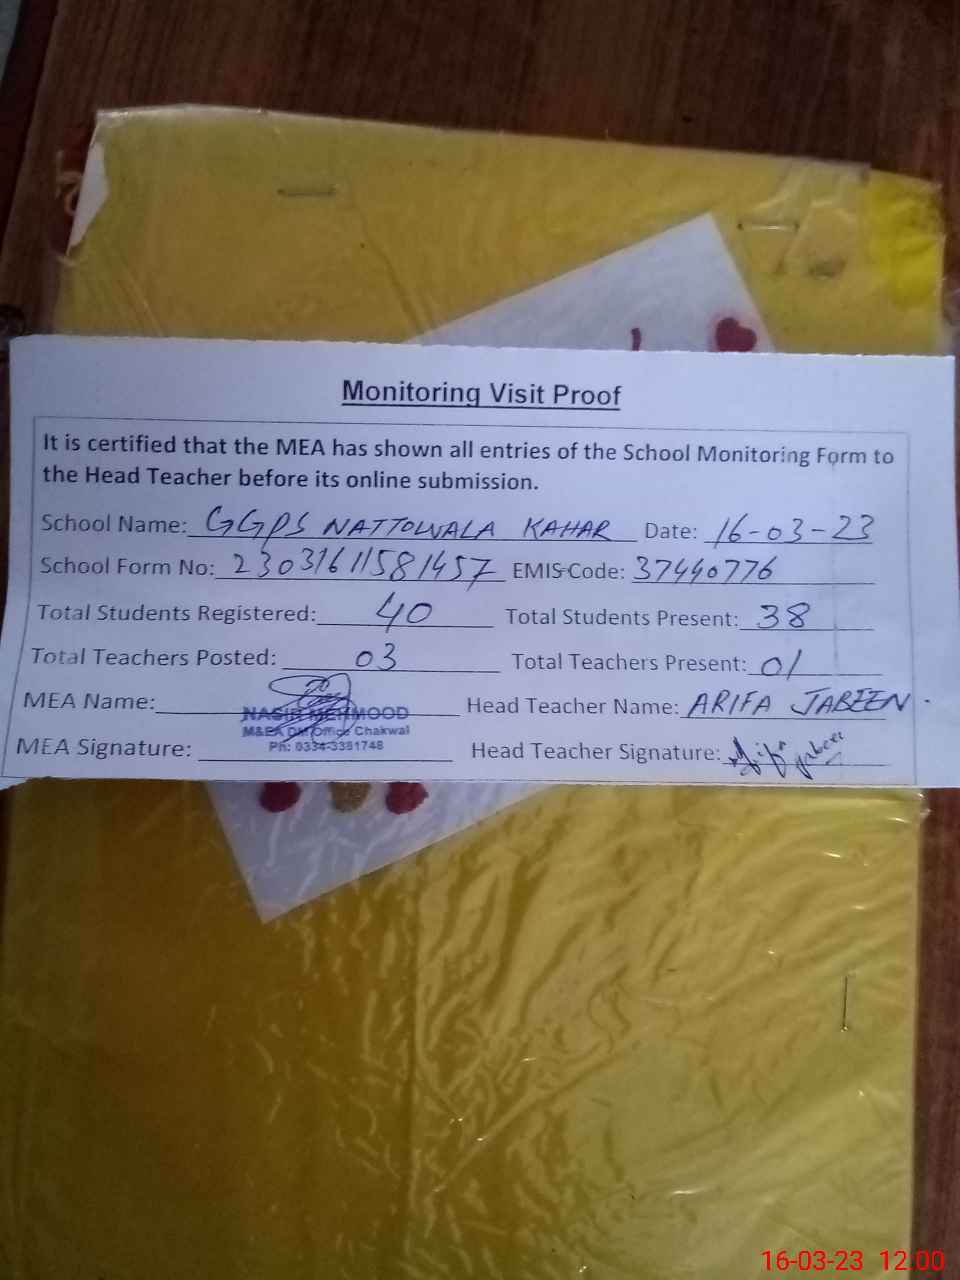 Monitoring Visit Proof
It is certified that the MEA has shown all entries of the School Monitoring Form to
the Head Teacher before its online submission.
School Name: GGPS NATTOWALA KAHAR Date: 16-03-23
School Form No: 23031611581457 EMIS Code: 37440776
Total Students Registered: 40 Total Students Present: 38
Total Teachers Posted: 03 Total Teachers Present: 01
MEA Name: Head Teacher Name: ARIFA JABEEN
NASIR MEHMOOD
M&EA DM Office Chakwal
Ph: 0334-3381748
MEA Signature: Head Teacher Signature: Arifa Jabeen
16-03-23 12:00